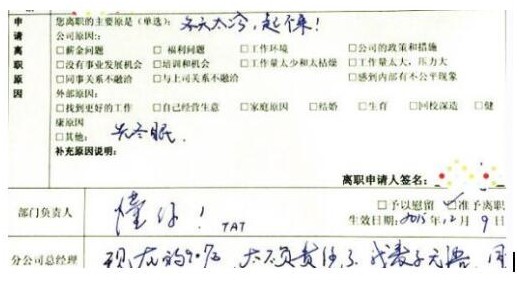 申请离职原因
您离职的主要原是（单选）：冬天太冷，起不来！
公司原因：
□薪金问题 □福利问题 □工作环境 □公司的政策和措施
□没有事业发展机会 □培训和机会 □工作量太少和太枯燥 □工作量太大，压力大
□同事关系不融洽 □与上司关系不融洽 □感到内部有不公平现象
外部原因：
□找到更好的工作 □自己经营生意 □家庭原因 □结婚 □生育 □回校深造 □健
康原因
□其他：去冬眠.
补充原因说明：
离职申请人签名：
部门负责人 懂你！TAT □予以慰留 ☑准予离职
生效日期：2015年12月9日
分公司总经理 现在的90后，太不负责任了，我表示无语，同